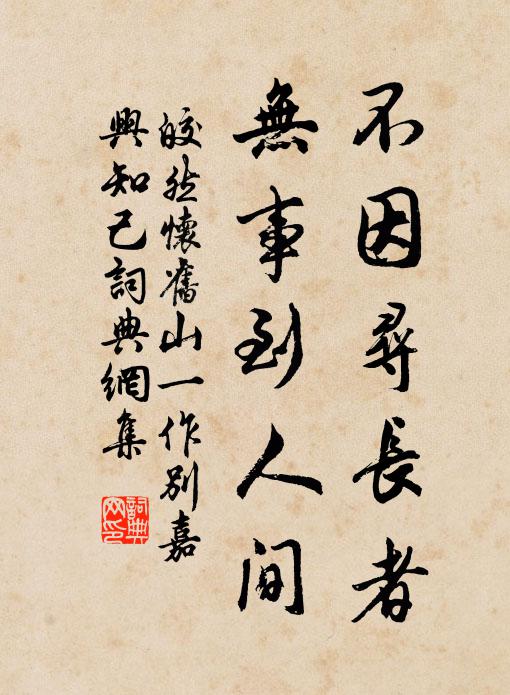 不因尋長者
無事到人间
皎然懷舊山一作別嘉
興知己詞典網集
詞典网印